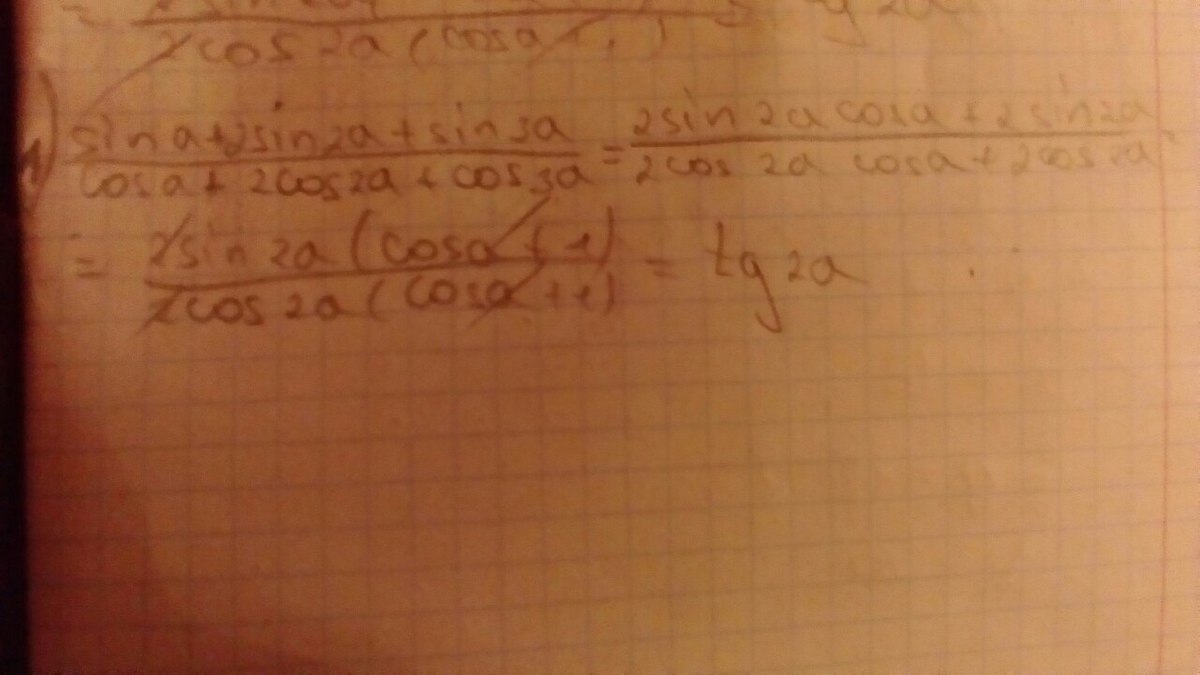 2cos 2a (cosa
sin a + 2sin2a + sin3a / cosa + 2cos2a + cos3a = 2sin 2a cosa + 2 sin2a / 2cos 2a cosa + 2cos 2a
= 2sin 2a (cosa + 1) / 2cos 2a (cosa + 1) = tg 2a